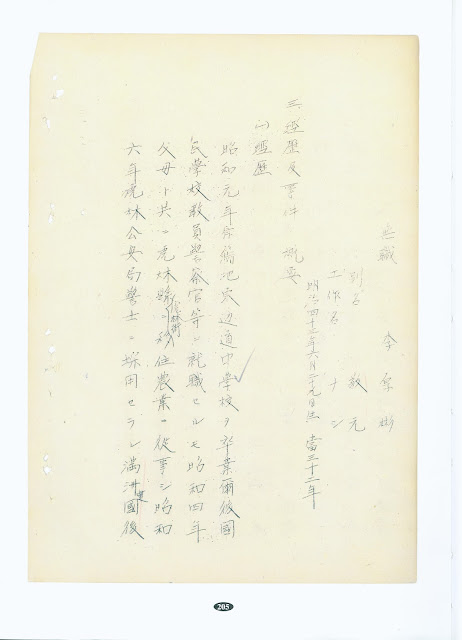 無職 李厚彬
別名 敬元
工作名 ナシ
明治四十三年六月二十九日生 當三十二年
三、經歷及事件ノ概要
(一)經歷
昭和元年 通中學校ヲ卒業爾後國
民學校教員警察官等ニ就職セルモ昭和四年
父母ト共ニ虎林縣 ニ移住農業ニ從事シ昭和
六年虎林公安局警士ニ採用セラレ滿洲國 後
205